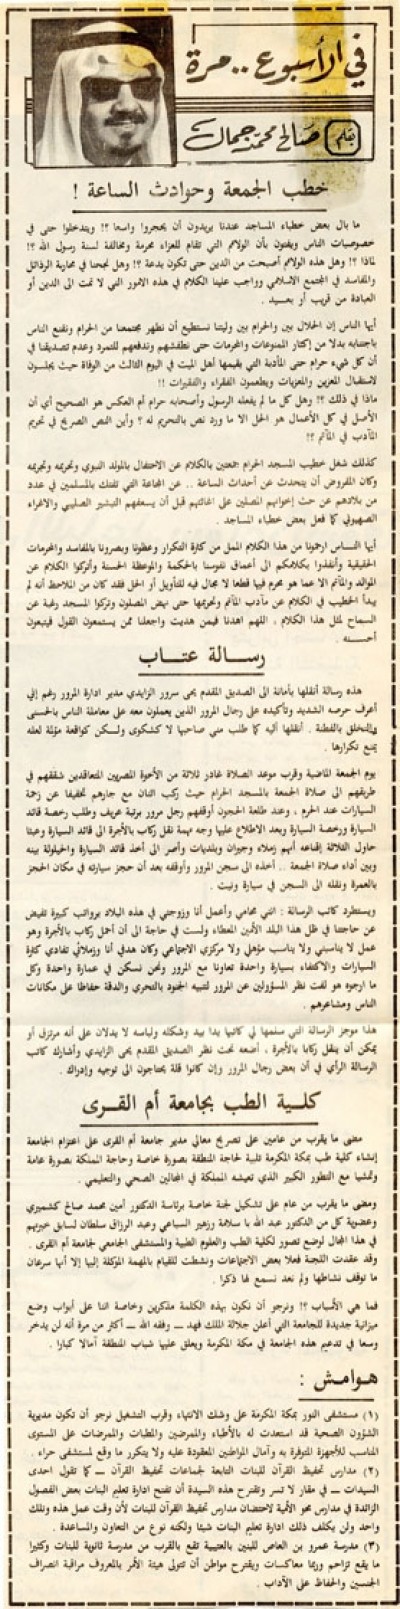 في الأسبوع .. مرة
بقلم صالح محمد جمال
خطب الجمعة وحوادث الساعة !
ما بال بعض خطباء المساجد عندنا يريدون أن يحجروا واسعا ؟! ويتدخلوا حتى في
خصوصيات الناس ويفتون بأن الولائم التي تقام للعزاء محرمة ومخالفة لسنة رسول الله ؟!
لماذا ؟! وهل هذه الولائم أصبحت من الدين حتى تكون بدعة ؟! وهل نجحنا في محاربة الرذائل
والمفاسد في المجتمع الاسلامي وواجب علينا الكلام في هذه الامور التي لا تمت الى الدين أو
العبادة من قريب أو بعيد .
أيها الناس إن الحلال بين والحرام بين وليتنا نستطيع أن نطهر مجتمعنا من الحرام ونقنع الناس
باجتنابه بدلا من إكثار الممنوعات والمحرمات حتى نطفشهم وندفعهم للتمرد وعدم تصديقنا في
أن كل شيء حرام حتى المأدبة التي يقيمها أهل الميت في اليوم الثالث من الوفاة حيث يجلسون
لاستقبال المعزين والمعزيات ويطعمون الفقراء والفقيرات !!
ماذا في ذلك ؟! وهل كل ما لم يفعله الرسول وأصحابه حرام أم العكس هو الصحيح أي أن
الأصل في كل الأعمال هو الحل الا ما ورد نص بالتحريم له ؟ وأين النص الصريح في تحريم
المآدب في المآتم ؟!
كذلك شغل خطيب المسجد الحرام جمعتين بالكلام عن الاحتفال بالمولد النبوي وتحريمه وتجريمه
وكان المفروض أن يتحدث عن أحداث الساعة .. عن المجاعة التي تفتك بالمسلمين في عدد
من بلادهم عن حث إخوانهم المصلين على اغاثتهم قبل أن يسعفهم التبشير الصليبي والاغراء
الصهيوني كما فعل بعض خطباء المساجد .
أيها النـاس ارحمونا من هذا الكلام الممل من كثارة التكرار وعظونا وبصرونا بالمفاسد والمحرمات
الحقيقية وأنفذوا بكلامكم الى أعماق نفوسنا بالحكمة والموعظة الحسنة وأتركوا الكلام عن
الموالد والمآتم الا عما هو محرم فيها قطعا لا مجال فيه للتأويل أو الحل فقد كان من الملاحظ أنه لم
يبدأ الخطيب في الكلام عن مآدب المآتم وتحريمها حتى نهض المصلون وتركوا المسجد رغبة عن
السماح لمثل هذا الكلام ، اللهم اهدنا فيمن هديت واجعلنا ممن يستمعون القول فيتبعون
أحسنه .
رسـالة عتـاب
هذه رسالة أنقلها بأمانة الى الصديق المقدم يحي سرور الزايدي مدير ادارة المرور رغم إني
أعرف حرصه الشديد وتأكيده على رجال المرور الذين يعملون معه على معاملة الناس بالحسنى
والتخلق بالفطنة . أنقلها اليه كما طلب مني صاحبها لا كشكوى ولـكن كواقعة مؤلمة لعله
يمنع تكرارها .
يوم الجمعة الماضية وقرب موعد الصلاة غادر ثلاثة من الأخوة المصريين المتعاقدين شققهم في
طريقهم الى صلاة الجمعة بالمسجد الحرام حيث ركب اثنان مع جارهم تخفيفا عن زحمة
السيارات عند الحرم ، وعند طلعة الحجون أوقفهم رجل مرور برتبة عريف وطلب رخصة قائد
السيارة ورخصة السيارة وبعد الاطلاع عليها وجه تهمة نقل ركاب بالأجرة الى قائد السيارة وعبثا
حاول الثلاثة إقناعه أنهم زملاء وجيران وبلديات وأصر الى أخذ قائد السيارة والحيلولة بينه
وبين أداء صلاة الجمعة .. أخذه الى سجن المرور وأوقفه بعد أن حجز سيارته في مكان الحجز
بالعمرة ونقله الى السجن في سيارة ونيت .
ويستطرد كاتب الرسالة : انني محامي وأعمل أنا وزوجتي في هذه البلاد برواتب كبيرة تفيض
عن حاجتنا في ظل هذا البلد الأمين المعطاء ولست في حاجة الى أن أحمل ركاب بالأجرة وهو
عمل لا يناسبني ولا يناسب مؤهلي ولا مركزي الاجتماعي وكان هدفي أنا وزملائي تفادي كثرة
السيارات والاكتفاء بسيارة واحدة تعاونا مع المرور ونحن نسكن في عمارة واحدة وكل
ما ارجوه هو لفت نظر المسؤولين عن المرور لتنبيه الجنود بالتحري والدقة حفاظا على مكانات
الناس ومشاعرهم .
هذا موجز الرسالة التي سلمها لي كاتبها يدا بيد وشكله ولباسه لا يدلان على أنه مرتزق أو
يمكن أن ينقل ركابا بالأجرة ، أضعه تحت نظر الصديق المقدم يحي الزايدي وأشارك كاتب
الرسالة الرأي في أن بعض رجال المرور وإن كانوا قلة يحتاجون الى توجيه وإدراك .
كلـية الطب بجامعة أم القـرى
مضى ما يقرب من عامين على تصريح معالي مدير جامعة أم القرى على اعتزام الجامعة
إنشاء كلية طب بمكة المكرمة تلبية لحاجة المنطقة بصورة خاصة وحاجة المملكة بصورة عامة
وتمشيا مع التطور الكبير الذي تعيشه المملكة في المجالين الصحي والتعليمي .
ومضى ما يقرب من عام على تشكيل لجنة خاصة برئاسة الدكتور أمين محمد صالح كشميري
وعضوية كل من الدكتور عبد الله با سلامة وزهير السباعي وعبد الرزاق سلطان لسابق خبرتهم
في هذا المجال لوضع تصور لكلية الطب والعلوم الطبية والمستشفى الجامعي لجامعة أم القرى .
وقد عقدت اللجنة فعلا بعض الاجتماعات ونشطت للقيام بالمهمة الموكلة إليها إلا أنها سرعان
ما توقف نشاطها ولم نعد نسمع لها ذكرا .
فما هي الأسباب ؟! ونرجو أن نكون بهذه الكلمة مذكرين وخاصة اننا على أبواب وضع
ميزانية جديدة للجامعة التي أعلن جلالة الملك فهد ــ وفقه الله ــ أكثر من مرة أنه لن يدخر
وسعا في تدعيم هذه الجامعة في مكة المكرمة ويعلق عليها شباب المنطقة آمالا كبارا .
هـوامـش :
(١) مستشفى النور بمكة المكرمة على وشك الانتهاء وقرب التشغيل نرجو أن تكون مديرية
الشؤون الصحية قد استعدت له بالأطباء والممرضين والطبيبات والممرضات على المستوى
المناسب للأجهزة المتوفرة به وآمال المواطنين المعقودة عليه ولا يتكرر ما وقع لمستشفى حراء .
(٢) مدارس تحفيظ القرآن للبنات التابعة لجماعات تحفيظ القرآن ــ كما تقول احدى
السيدات ــ في مقار لا تسر وتقترح هذه السيدة أن تفتح ادارة تعليم البنات بعض الفصول
الزائدة في مدارس محو الأمية لاحتضان مدارس تحفيظ القرآن للبنات لأن وقت عمل هذه وتلك
واحد ولن يكلف ذلك ادارة تعليم البنات شيئا ولكنه نوع من التعاون والمساعدة .
(٣) مدرسة عمرو بن العاص للبنين بالعتيبية تقع بالقرب من مدرسة ثانوية للبنات وكثيرا
ما يقع تزاحم وربما معاكسات ويقترح مواطن أن تتولى هيئة الأمر بالمعروف مراقبة انصراف
الجنسين والحفاظ على الآداب .